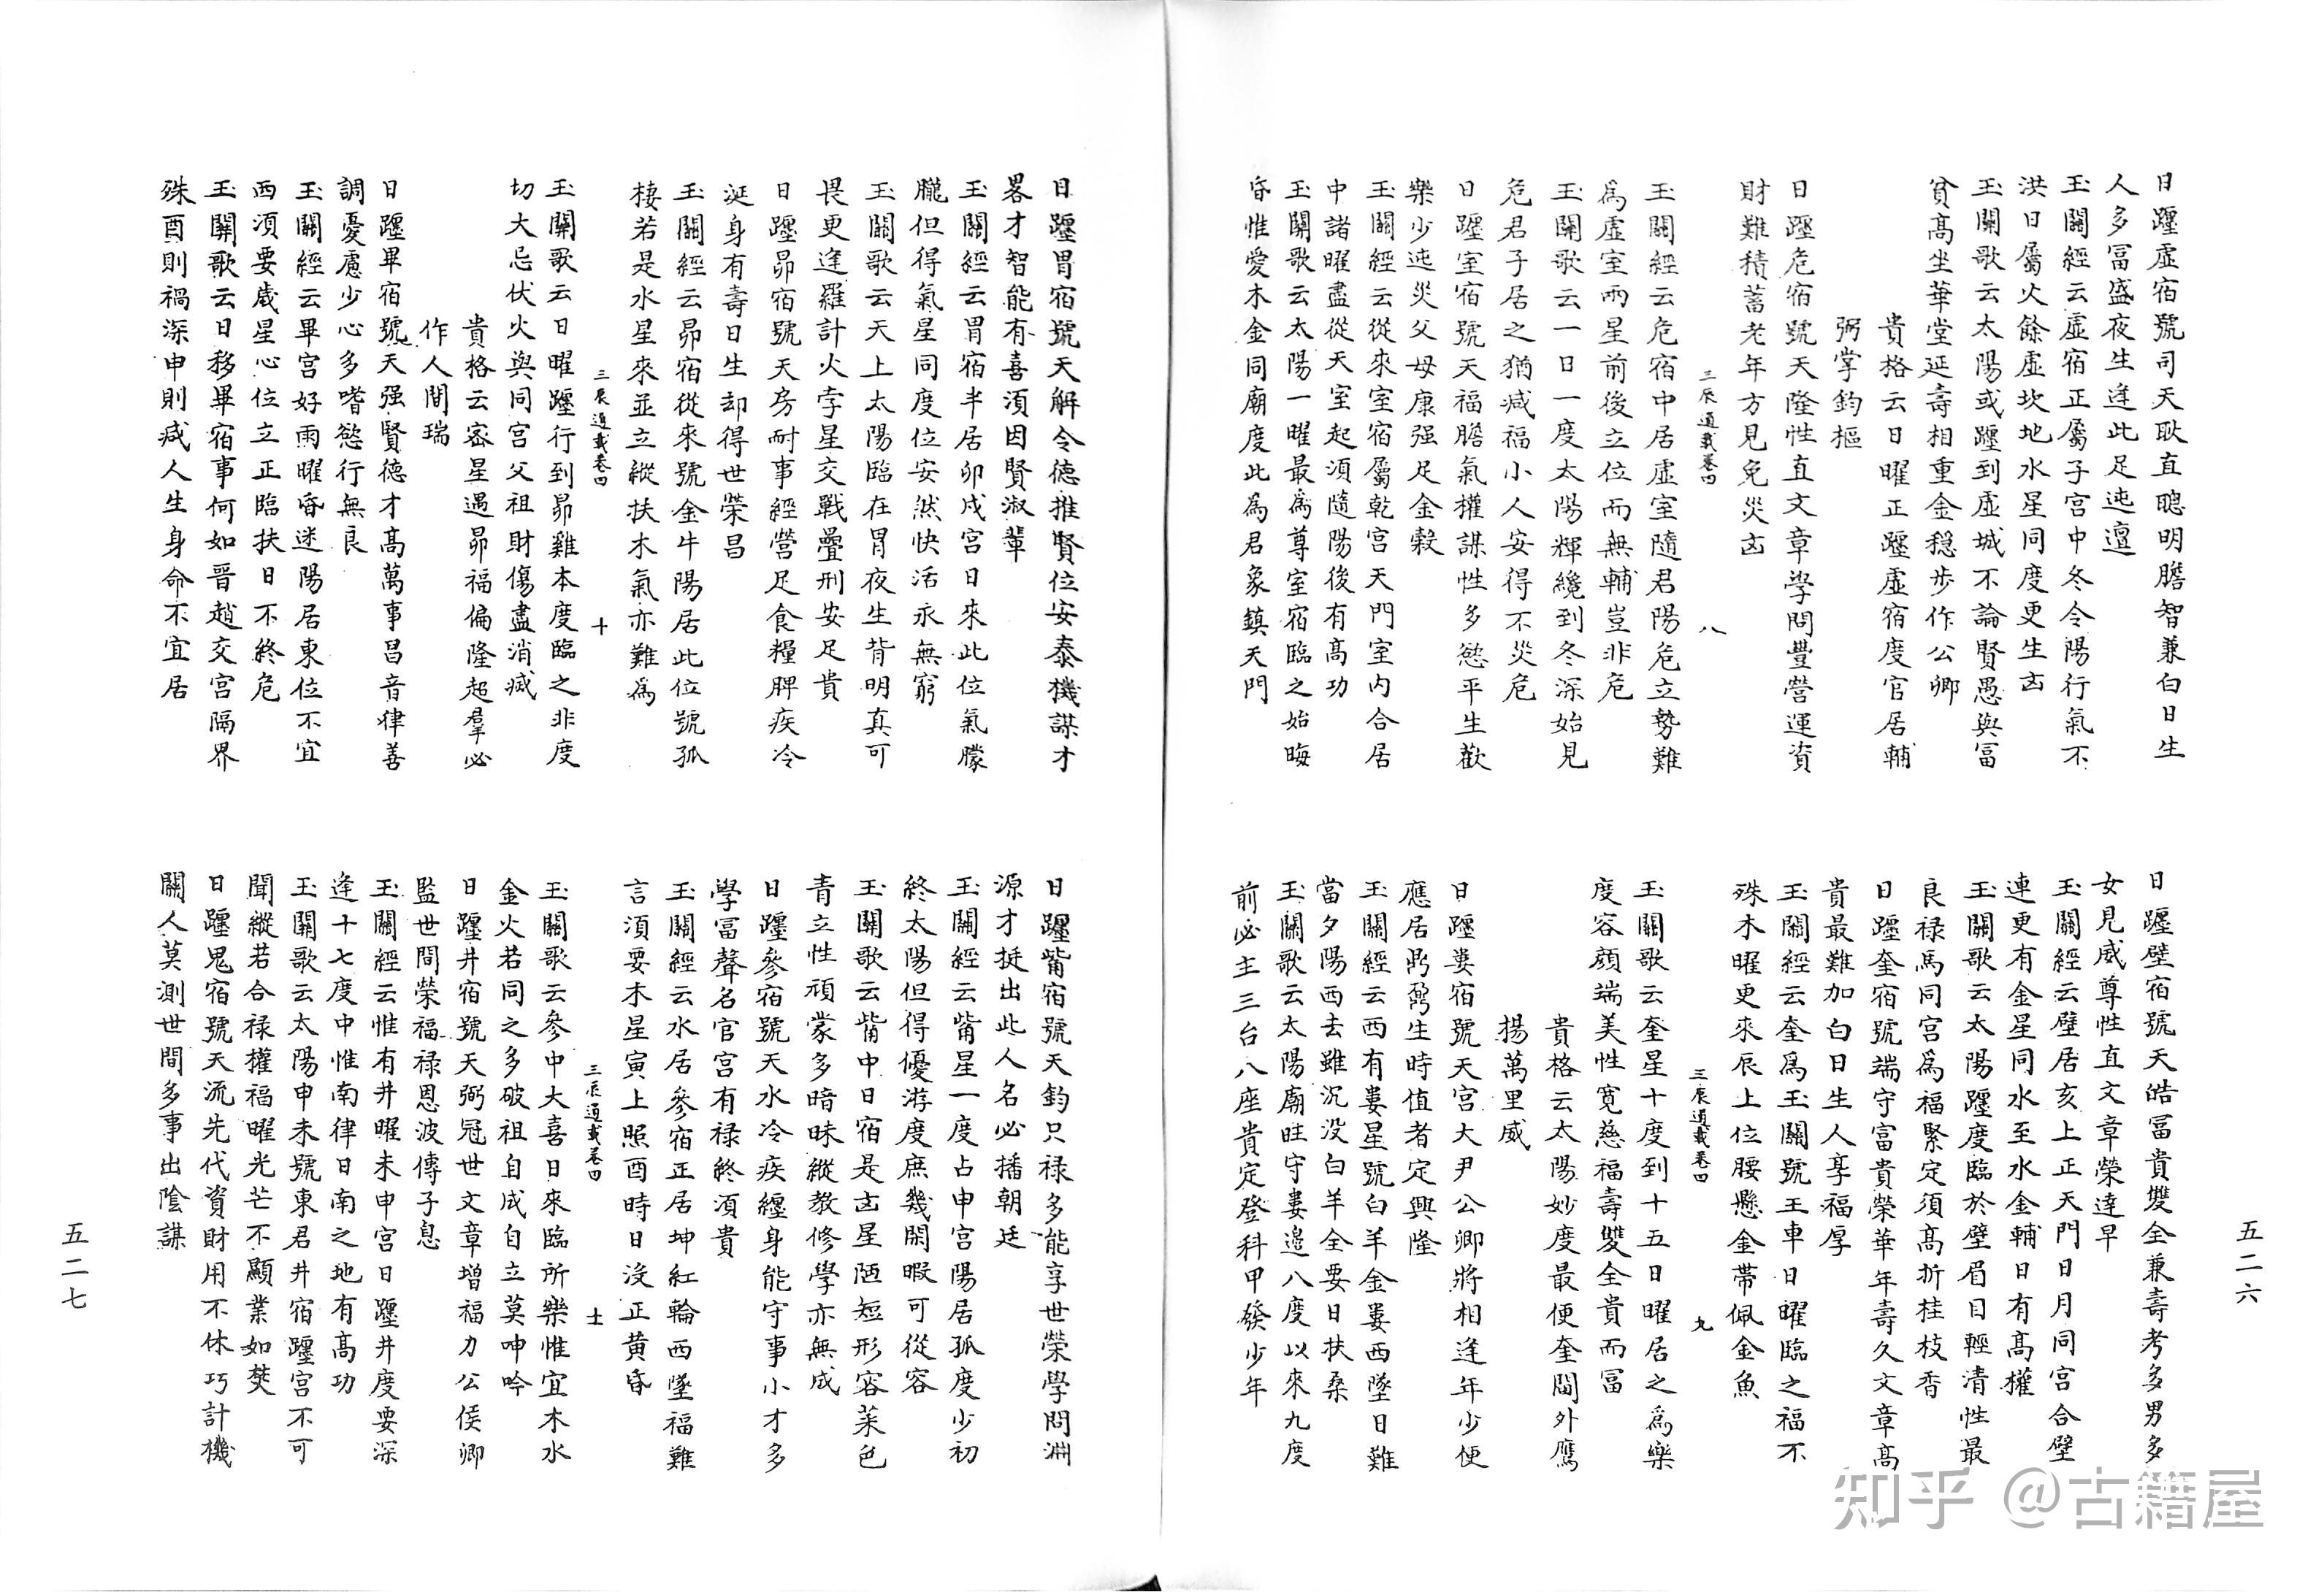 日躔虛宿號司天耿直聰明膽智兼白日生
人多冨盛夜生逢此足迍邅
玉關經云虛宿正屬子宮中冬令陽行氣不
洪日屬火餘虛坎地水星同度更生凶
玉關歌云太陽或躔到虛城不論賢愚與冨
貧高坐華堂延壽相重金穩步作公卿
貴格云日曜正躔虛宿度官居輔
弼掌鈞樞
日躔危宿號天隆性直文章學問豐營運資
財難積蓄老年方見免災凶
三辰通載卷四
八
玉關經云危宿中居虛室隨君陽危立勢難
為虛室兩星前後立位而無輔豈非危
玉關歌云一日一度太陽輝纔到冬深始見
危君子居之猶減福小人安得不災危
日躔室宿號天福膽氣權謀性多慾平生歡
樂少迍災父母康强足金穀
玉關經云從來室宿屬乾宮天門室内合居
中諸曜盡從天室起湏隨陽後有高功
玉關歌云太陽一曜最為尊室宿臨之始晦
昏惟愛木金同廟度此為君象鎮天門
日躔壁宿號天皓冨貴雙全兼壽考多男多
女見威尊性直文章榮達早
玉關經云壁居亥上正天門日月同宮合壁
連更有金星同水至水金輔日有高權
玉關歌云太陽躔度臨於壁眉目輕清性最
良祿馬同宮為福緊定須高折桂枝香
日躔奎宿號端守富貴榮華年壽久文章高
貴最難加白日生人享福厚
玉關經云奎為玉關號王車日曜臨之福不
殊木曜更來辰上位腰懸金帶佩金魚
三辰通載卷四
九
玉關歌云奎星十度到十五日曜居之為樂
度容顔端美性寛慈福壽雙全貴而冨
貴格云太陽妙度最便奎閫外鷹
揚萬里威
日躔婁宿號天宮大尹公卿將相逢年少便
應居鼎鼐生時值者定興隆
玉關經云西有婁星號白羊金婁西墜日難
當夕陽西去雖沉没白羊全要日扶桑
玉關歌云太陽廟旺守婁邊八度以來九度
前必主三台八座貴定登科甲發少年
五二六
日躔胃宿號天解令德推賢位安泰機謀才
畧才智能有喜湏因賢淑輩
玉關經云胃宿半居卯戌宮日來此位氣朦
朧但得氣星同度位安然快活永無窮
玉關歌云天上太陽臨在胃夜生背明真可
畏更逢羅計火孛星交戰疊刑安足貴
日躔昴宿號天房耐事經營足食糧脾疾冷
涎身有壽日生却得世榮昌
玉關經云昴宿從來號金牛陽居此位號孤
棲若是水星來並立縱扶木氣亦難為
三辰通載卷四
十
玉關歌云日曜躔行到昴雞本度臨之非度
切大忌伏火與同宮父祖財傷盡消減
貴格云密星遇昴福偏隆超羣必
作人間瑞
日躔畢宿號天强賢德才高萬事昌音律善
調憂慮少心多嗜慾行無良
玉關經云畢宮好雨曜昏迷陽居東位不宜
西湏要歲星心位立正臨扶日不終危
玉關歌云日移畢宿事何如晋趙交宮隔界
殊酉則禍深申則减人生身命不宜居
日躔觜宿號天鈞只祿多能享世榮學問淵
源才挺出此人名必播朝廷
玉關經云觜星一度占申宮陽居孤度少初
終太陽但得優游度庶幾閒暇可從容
玉關歌云觜中日宿是凶星陋短形容菜色
青立性頑蒙多暗昧縱教修學亦無成
日躔參宿號天水冷疾纏身能守事小才多
學冨聲名官宮有祿終湏貴
玉關經云水居參宿正居坤紅輪西墜福難
言湏要木星寅上照酉時日没正黄昏
三辰通載卷四
十一
玉關歌云參中大喜日來臨所樂惟宜木水
金火若同之多破祖自成自立莫呻吟
日躔井宿號天弼冠世文章增福力公侯卿
監世間榮福祿恩波傳子息
玉關經云惟有井曜未申宮日躔井度要深
逢十七度中惟南律日南之地有高功
玉關歌云太陽申未號東君井宿躔宮不可
聞縱若合祿權福曜光芒不顯業如焚
日躔鬼宿號天流先代資財用不休巧計機
關人莫測世間多事出陰謀
五二七
知乎 @古籍屋